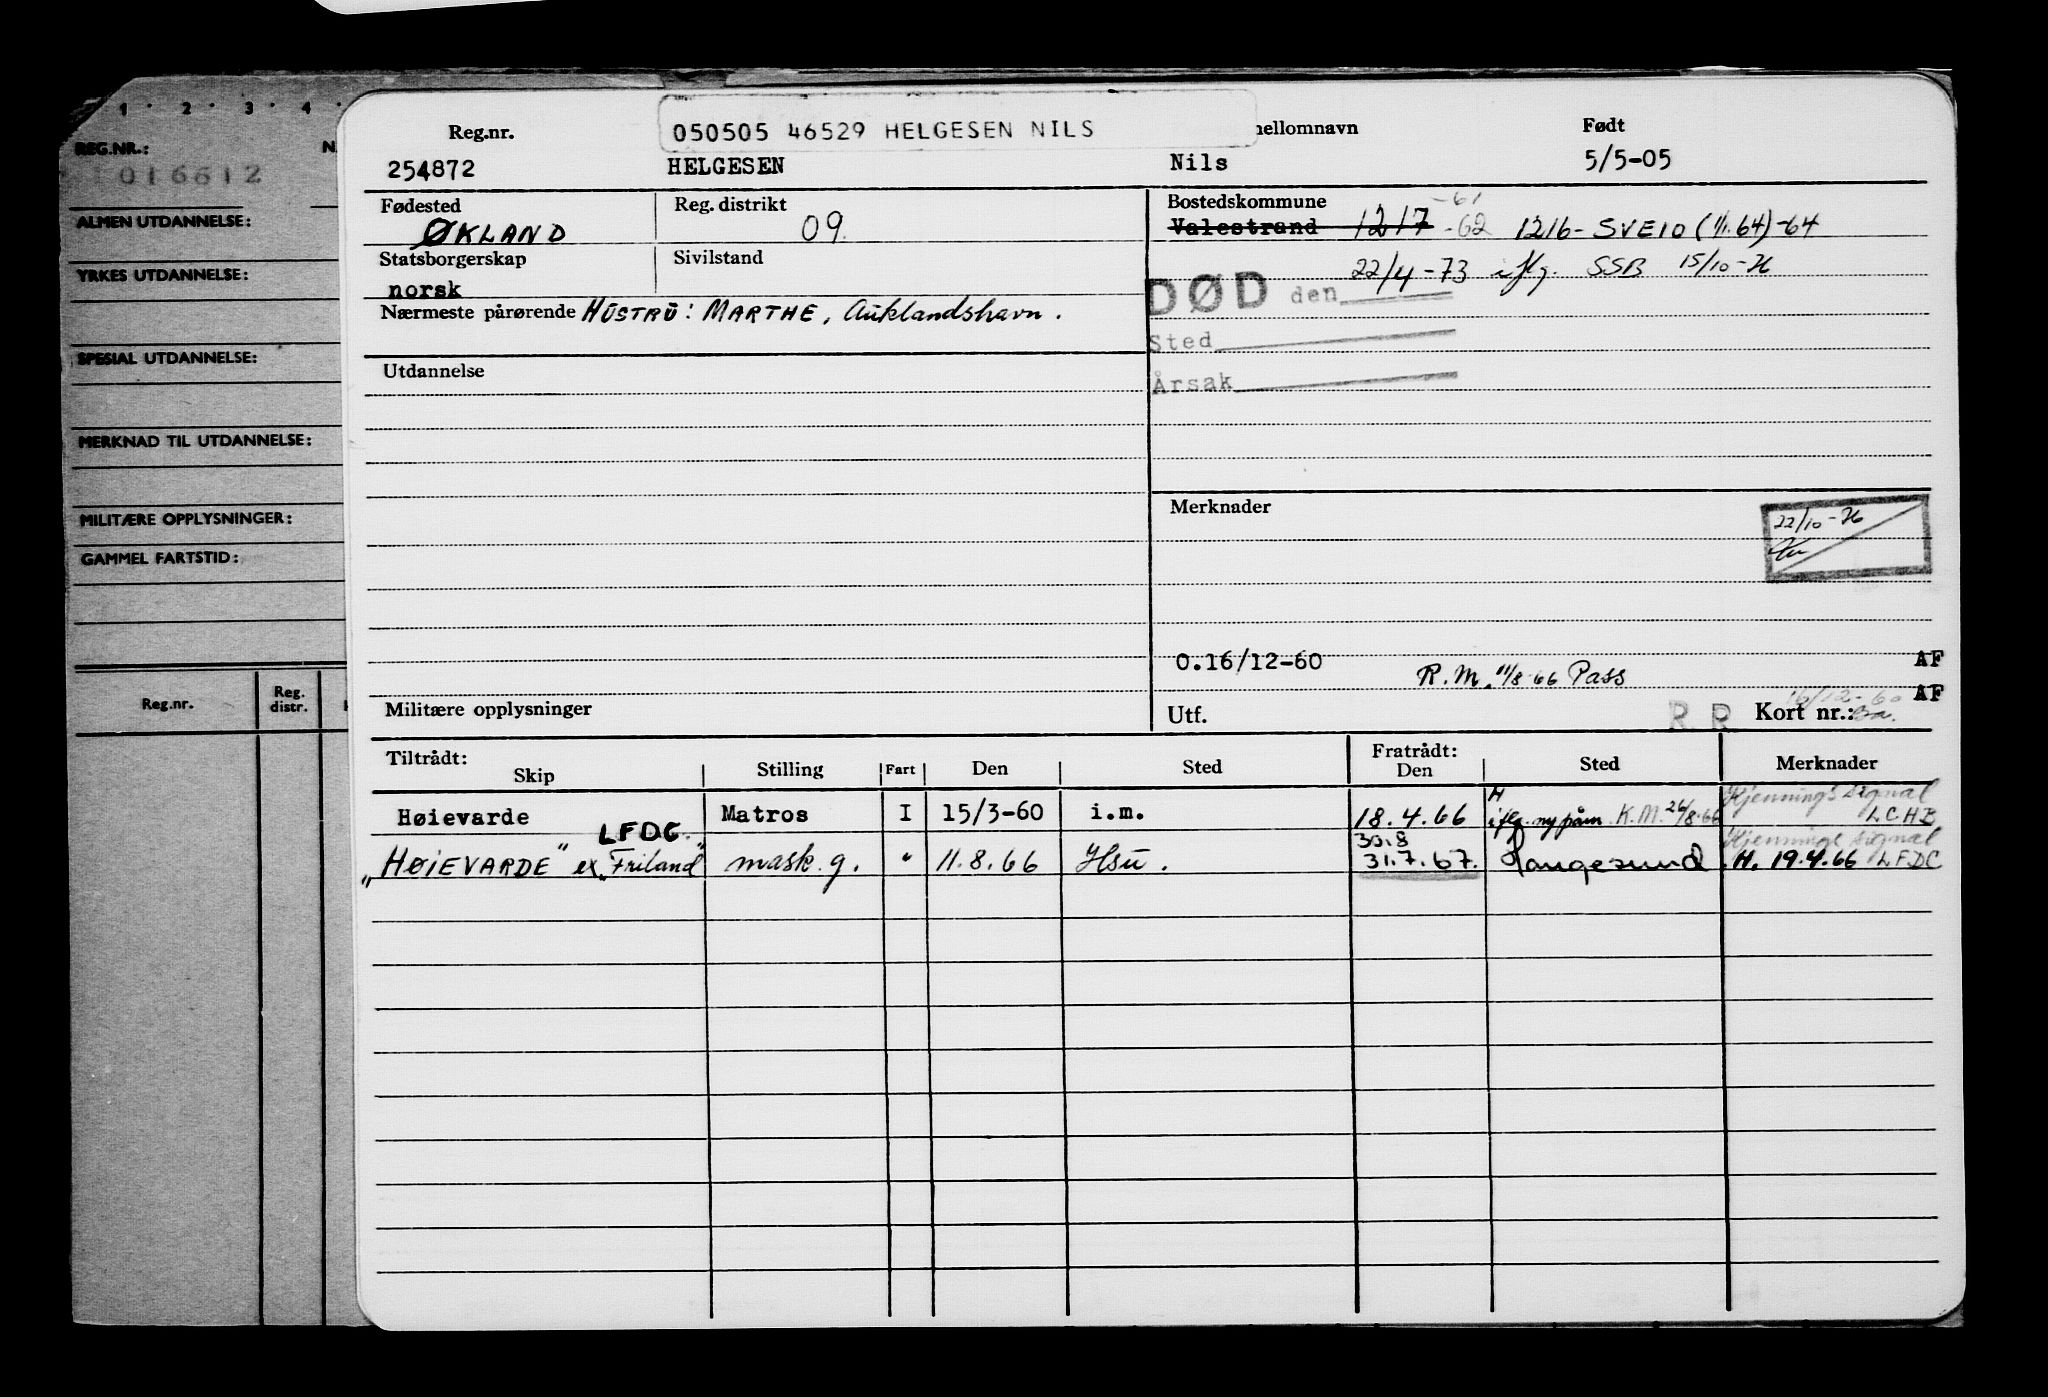 1 · 2 · 3 · 4 ·
REG.NR.:
016612
ALMEN UTDANNELSE:
YRKES UTDANNELSE:
SPESIAL UTDANNELSE:
MERKNAD TIL UTDANNELSE:
MILITÆRE OPPLYSNINGER:
GAMMEL FARTSTID:
Reg.nr. Reg. distr.
Reg.nr. 050505 46529 HELGESEN NILS mellomnavn Født
254872 HELGESEN Nils 5/5-05
Fødested Reg. distrikt Bostedskommune -61
ØKLAND 09. Valestrand 1217 -62 1216- SVEIO (1/1.64)-64
Statsborgerskap Sivilstand
norsk
DØD den 22/4-73 iflg. SSB 15/10-76
Nærmeste pårørende HUSTRU: MARTHE, Auklandshavn.
Sted
Årsak
Utdannelse
Merknader
22/10-76
0.16/12-60 AF
R.M. 11/8.66 Pass
AF
16/12-60
Militære opplysninger Utf. R R Kort nr.:
Tiltrådt: Fratrådt:
Skip Stilling Fart Den Sted Den Sted Merknader
Høievarde Matros I 15/3-60 i.m. 18.4.66 H iflg. ny påm. K.M. 26/8.66 Kjennings signal LCHE
LFDC 30.8 Kjennings signal
"HØIEVARDE" ex "Friland" mask. g. " 11.8.66 Hsu. 31.7.67. Haugesund H. 19.4.66 LFDC